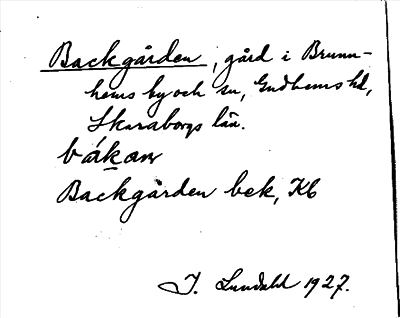 Backgården, gård i Brunn-
hems by och sn, Gudhems hd,
Skaraborgs län.
bákaɴ
Backgården bek, Kb
I. Lundahl 1927.